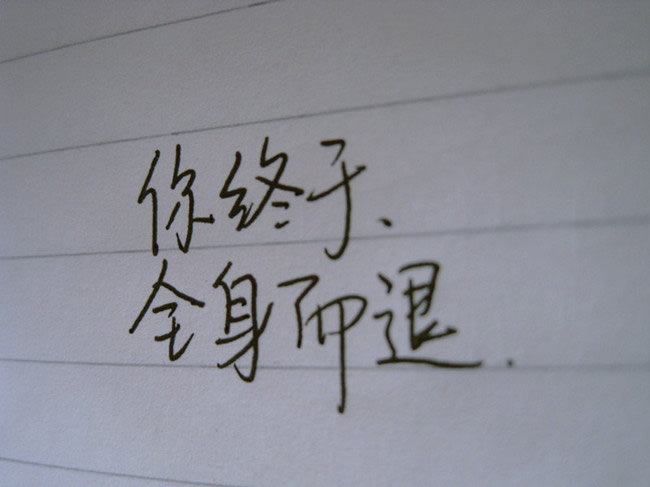 你终于、
全身而退.